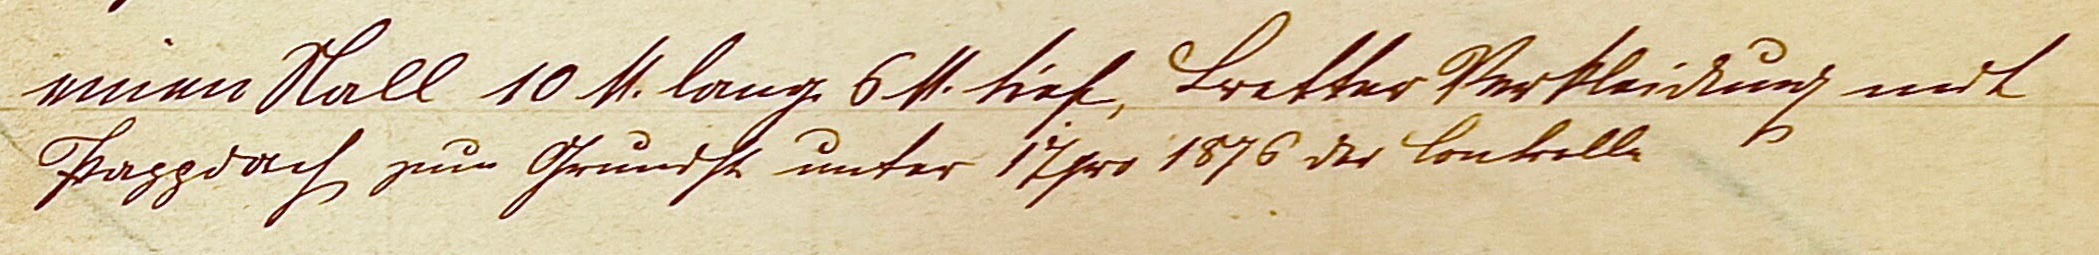 einen Stall 10 M. lang 6 M. tief, Bretter Verkleidung mit
Pappdach zum Grundst unter 17 pro 1876 der Controlle